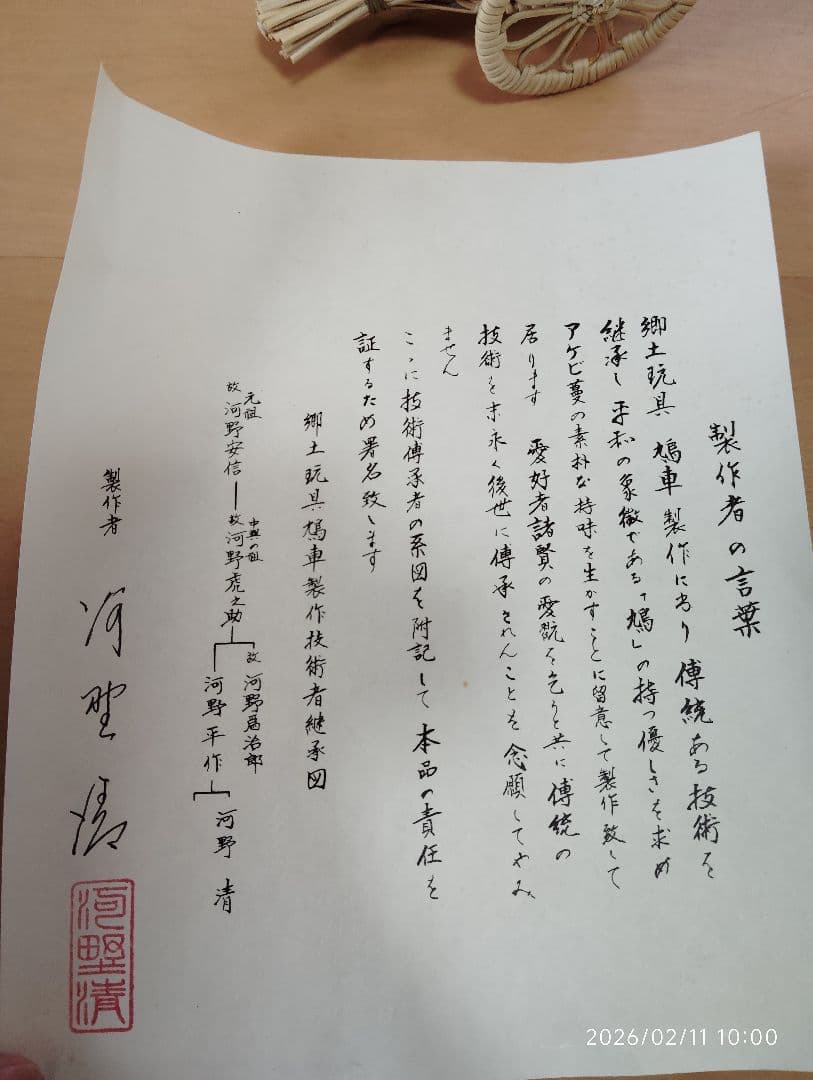 製作者の言葉
郷土玩具 鳩車 製作に当り 傳統ある技術を
継承し 平和の象徴である「鳩」の持つ優しさを求め
アケビ蔓の素朴な持味を生かすことに留意して製作致して
居ります 愛好者諸賢の愛翫を乞うと共に傳統の
技術を末永く後世に傳承されんことを念願してやみ
ません
こゝに技術傳承者の系図を附記して 本品の責任を
証するため署名致します
郷土玩具鳩車製作技術者継承図
元祖
故 河野安信
中興の祖
故 河野虎之助
故 河野 治郎
河野平作
河野 清
製作者 河野清
河野清
2026/02/11 10:00